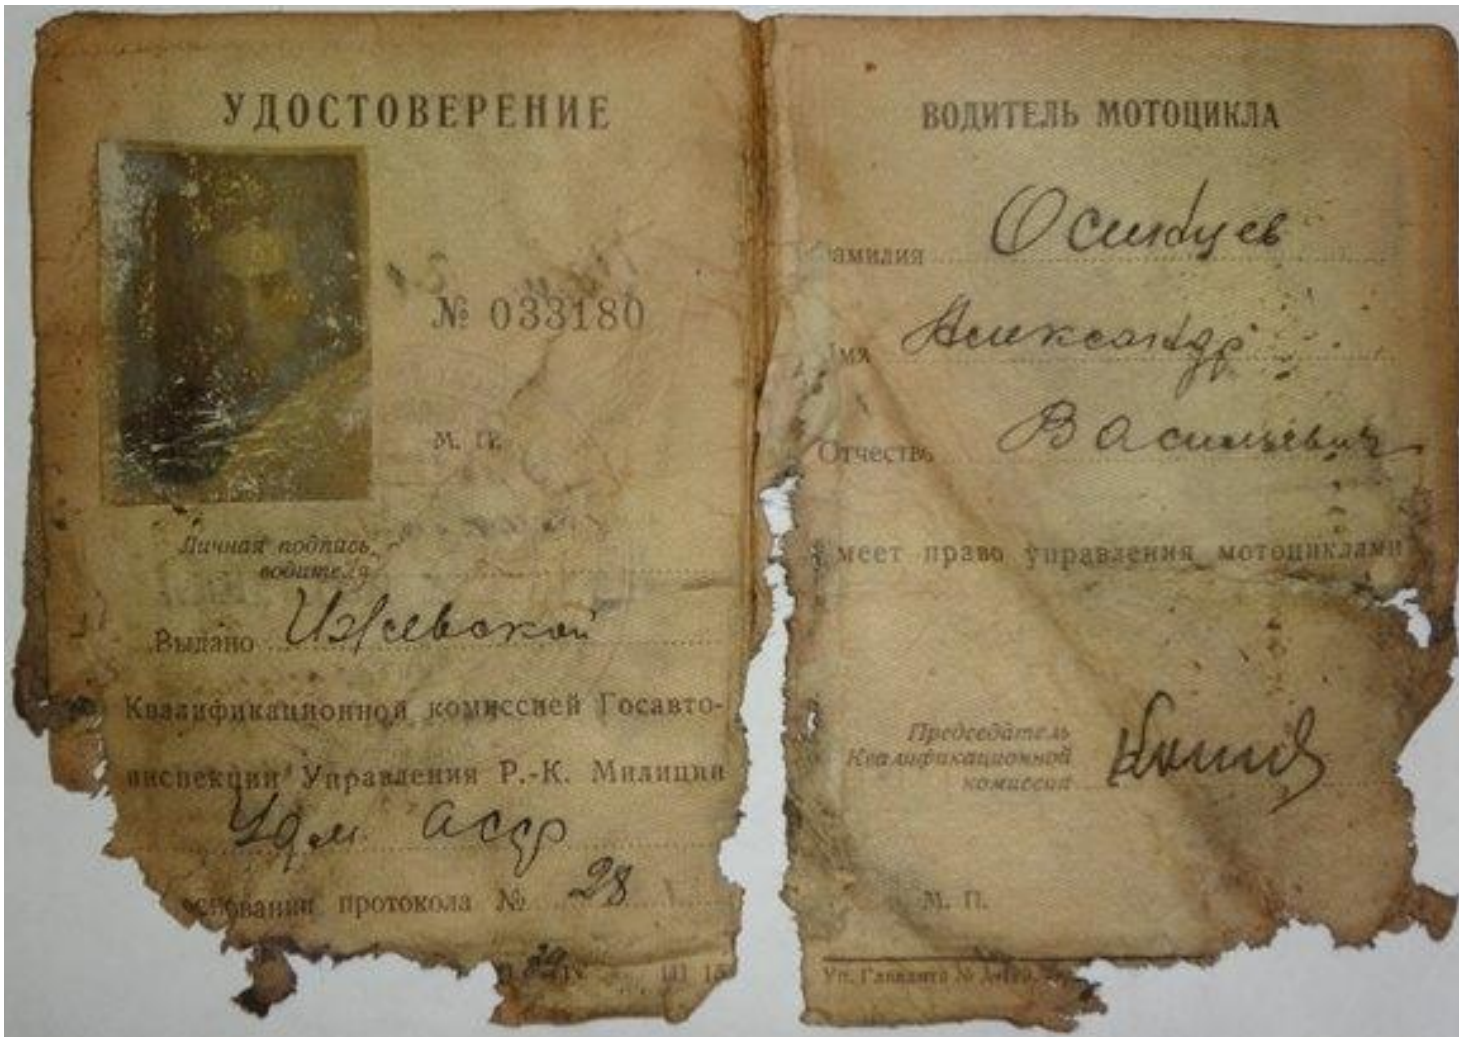 УДОСТОВЕРЕНИЕ
№ 033180
М. П.
Личная подпись
водителя
Выдано Ижевской
Квалификационной комиссией Госавто-
инспекции Управления Р.-К. Милиции
Удм. АССР
основании протокола № 28
ВОДИТЕЛЬ МОТОЦИКЛА
амилия
Имя Александр
Отчество Васильевич
имеет право управления мотоциклами
Председатель
Квалификационной
комиссии
М. П.
Уп. Главлита №